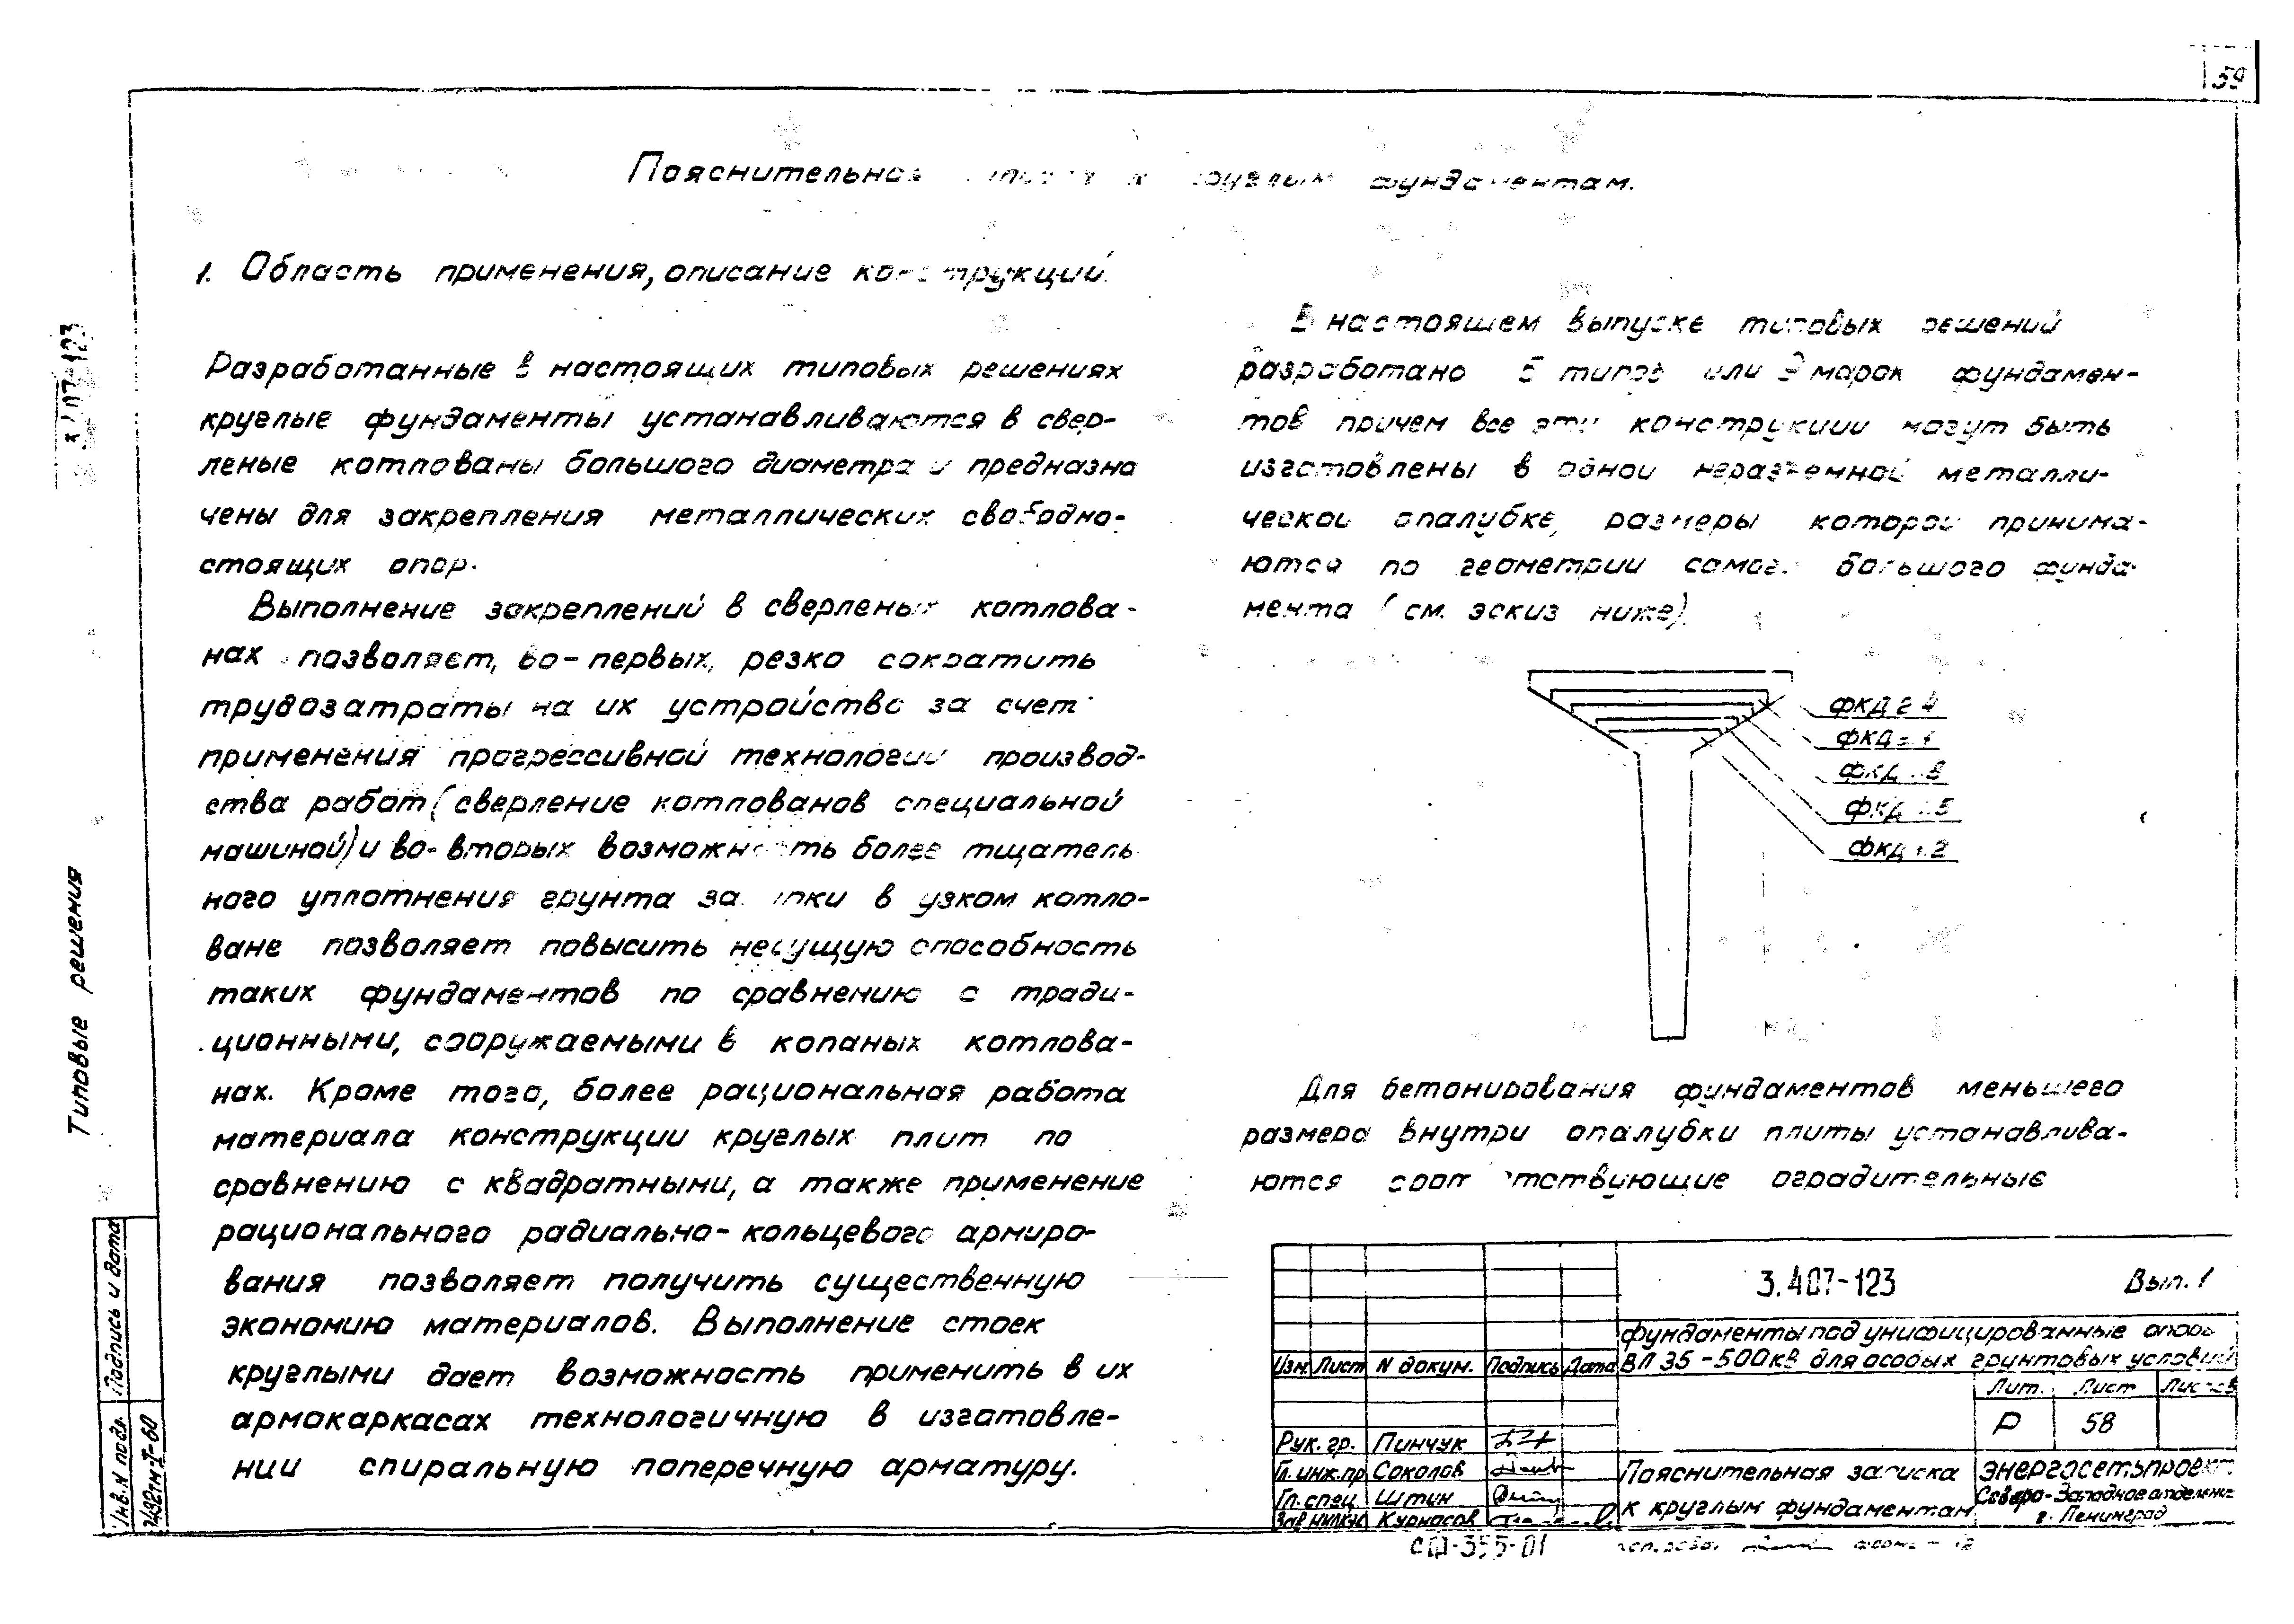 59
Пояснительная круглым фундаментам.
1. Область применения, описание конструкций.
Разработанные в настоящих типовых решениях
круглые фундаменты устанавливаются в свер-
леные котлованы большого диаметра и предназна
чены для закрепления металлических свободно-
стоящих опор.
Выполнение закреплений в сверленых котлова-
нах позволяет, во-первых, резко сократить
трудозатраты на их устройство за счет
применения прогрессивной технологии производ-
ства работ (сверление котлованов специальной
машиной) и во-вторых возможность более тщатель
ного уплотнения грунта в узком котло-
ване позволяет повысить несущую способность
таких фундаментов по сравнению с тради-
ционными, сооружаемыми в копаных котлова-
нах. Кроме того, более рациональная работа
материала конструкции круглых плит по
сравнению с квадратными, а также применение
рационального радиально-кольцевого армиро-
вания позволяет получить существенную
экономию материалов. Выполнение стоек
круглыми дает возможность применить в их
армокаркасах технологичную в изготовле-
нии спиральную поперечную арматуру.
В настоящем выпуске типовых решений
разработано 5 типов или 9 марок фундамен-
тов причем все эти конструкции могут быть
изготовлены в одной неразъемной металли-
ческой опалубке, размеры которой принима-
ются по геометрии самого большого фунда-
мента (см. эскиз ниже).
ФКД 2 4
ФКД
ФКД
ФКД
ФКД
Для бетонирования фундаментов меньшего
размера внутри опалубки плиты устанавлива-
ются соответствующие оградительные
3.407-123
Типовые решения
Подпись и дата
Инв. N подл.
3.407-123 Вып. 1
Фундаменты под унифицированные опоры
Изм. Лист N докум. Подпись Дата ВЛ 35-500кВ для особых грунтовых условий
Лит. Лист Листов
Р 58
Рук. гр. Пинчук
Гл. инж. пр Соколов Пояснительная записка Энергосетьпроект
Гл. спец. Штин к круглым фундаментам Северо-Западное отделение
Курносов г. Ленинград
СФ-355-01